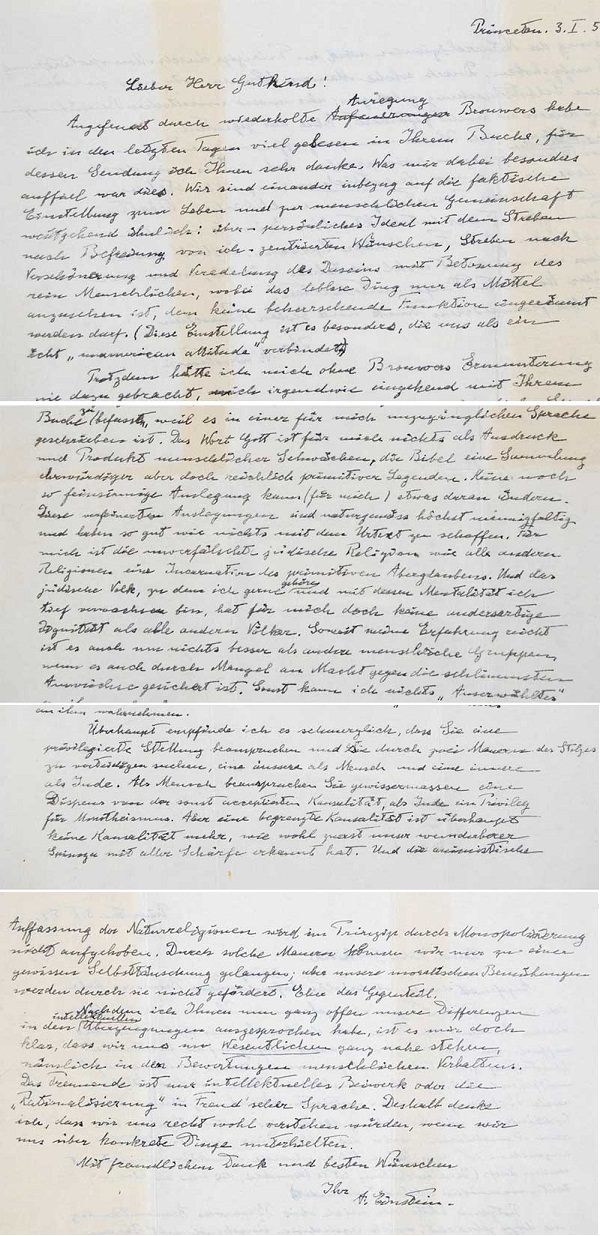 Princeton. 3. I. 5
Lieber Herr Gutkind!
Anregung
Angefeuert durch wiederholte Anfeuerungen Brouwers habe
ich in den letzten Tagen viel gelesen in Ihrem Buche, für
dessen Sendung ich Ihnen sehr danke. Was mir dabei besonders
auffiel war dies. Wir sind einander inbezug auf die faktische
Einstellung zum Leben und zur menschlichen Gemeinschaft
weitgehend ähnlich: über-persönliches Ideal mit dem Streben
nach Befreiung von ich-zentrierten Wünschen, Streben nach
Verschönerung und Veredelung des Daseins mit Betonung des
rein Menschlichen, wobei das leblose Ding nur als Mittel
anzusehen ist, dem keine beherrschende Funktion eingeräumt
werden darf. (Diese Einstellung ist es besonders, die uns als ein
ächt „unamerican attitude" verbindet)
Trotzdem hätte ich mich ohne Brouwers Ermunterung
nie dazu gebracht, mich irgendwie eingehend mit Ihrem
Buche zu befassen, weil es in einer für mich unzugänglichen Sprache
geschrieben ist. Das Wort Gott ist für mich nichts als Ausdruck
und Produkt menschlicher Schwächen, die Bibel eine Sammlung
ehrwürdiger aber doch reichlich primitiver Legenden. Keine noch
so feinsinnige Auslegung kann (für mich) etwas daran ändern.
Diese verfeinerten Auslegungen sind naturgemäss höchst mannigfaltig
und haben so gut wie nichts mit dem Urtext zu schaffen. Für
mich ist die unverfälschte jüdische Religion wie alle anderen
Religionen eine Incarnation des primitiven Aberglaubens. Und das
gehöre
jüdische Volk, zu dem ich gerne und mit dessen Mentalität ich
tief verwachsen bin, hat für mich doch keine andersartige
Dignität als alle andern Völker. Soweit meine Erfahrung reicht
ist es auch um nichts besser als andere menschliche Gruppen,
wenn es auch durch Mangel an Macht gegen die schlimmsten
Auswüchse gesichert ist. Sonst kann ich nichts „Auserwähltes"
an ihm wahrnehmen.
Überhaupt empfinde ich es schmerzlich, dass Sie eine
privilegierte Stellung beanspruchen und sie durch zwei Mauern des Stolzes
zu verteidigen suchen, eine äussere als Mensch und eine innere
als Jude. Als Mensch beanspruchen Sie gewissermassen einen
Dispens von der sonst acceptierten Kausalität, als Jude ein Privileg
für Monotheismus. Aber eine begrenzte Kausalität ist überhaupt
keine Kausalität mehr, wie wohl zuerst unser wunderbarer
Spinoza mit aller Schärfe erkannt hat. Und die animistische
Auffassung der Naturreligionen wird im Prinzip durch Monopolisierung
nicht aufgehoben. Durch solche Mauern können wir nur zu einer
gewissen Selbsttäuschung gelangen; aber unsere moralischen Bemühungen
werden durch sie nicht gefördert. Eher das Gegenteil.
Nachdem ich Ihnen nun ganz offen unsere Differenzen
intellektuellen
in den Überzeugungen ausgesprochen habe, ist es mir doch
klar, dass wir uns im Wesentlichen ganz nahe stehen,
nämlich in den Bewertungen menschlichen Verhaltens.
Das Trennende ist nur intellektuelles Beiwerk oder die
„Rationalisierung" in Freud'scher Sprache. Deshalb denke
ich, dass wir uns recht wohl verstehen würden, wenn wir
uns über konkrete Dinge unterhielten.
Mit freundlichem Dank und besten Wünschen
Ihr
A. Einstein.